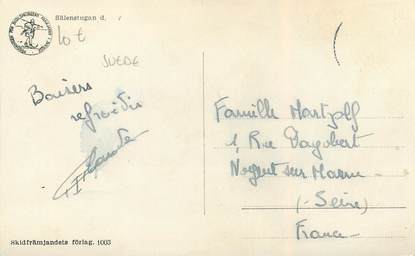 Sälenstugan d.
10 €
SUEDE
Baisers
refroidis
Famille Martzolf
1, Rue Dagobert
Nogent sur Marne
(- Seine)
France -
Skidfrämjandets förlag. 1003